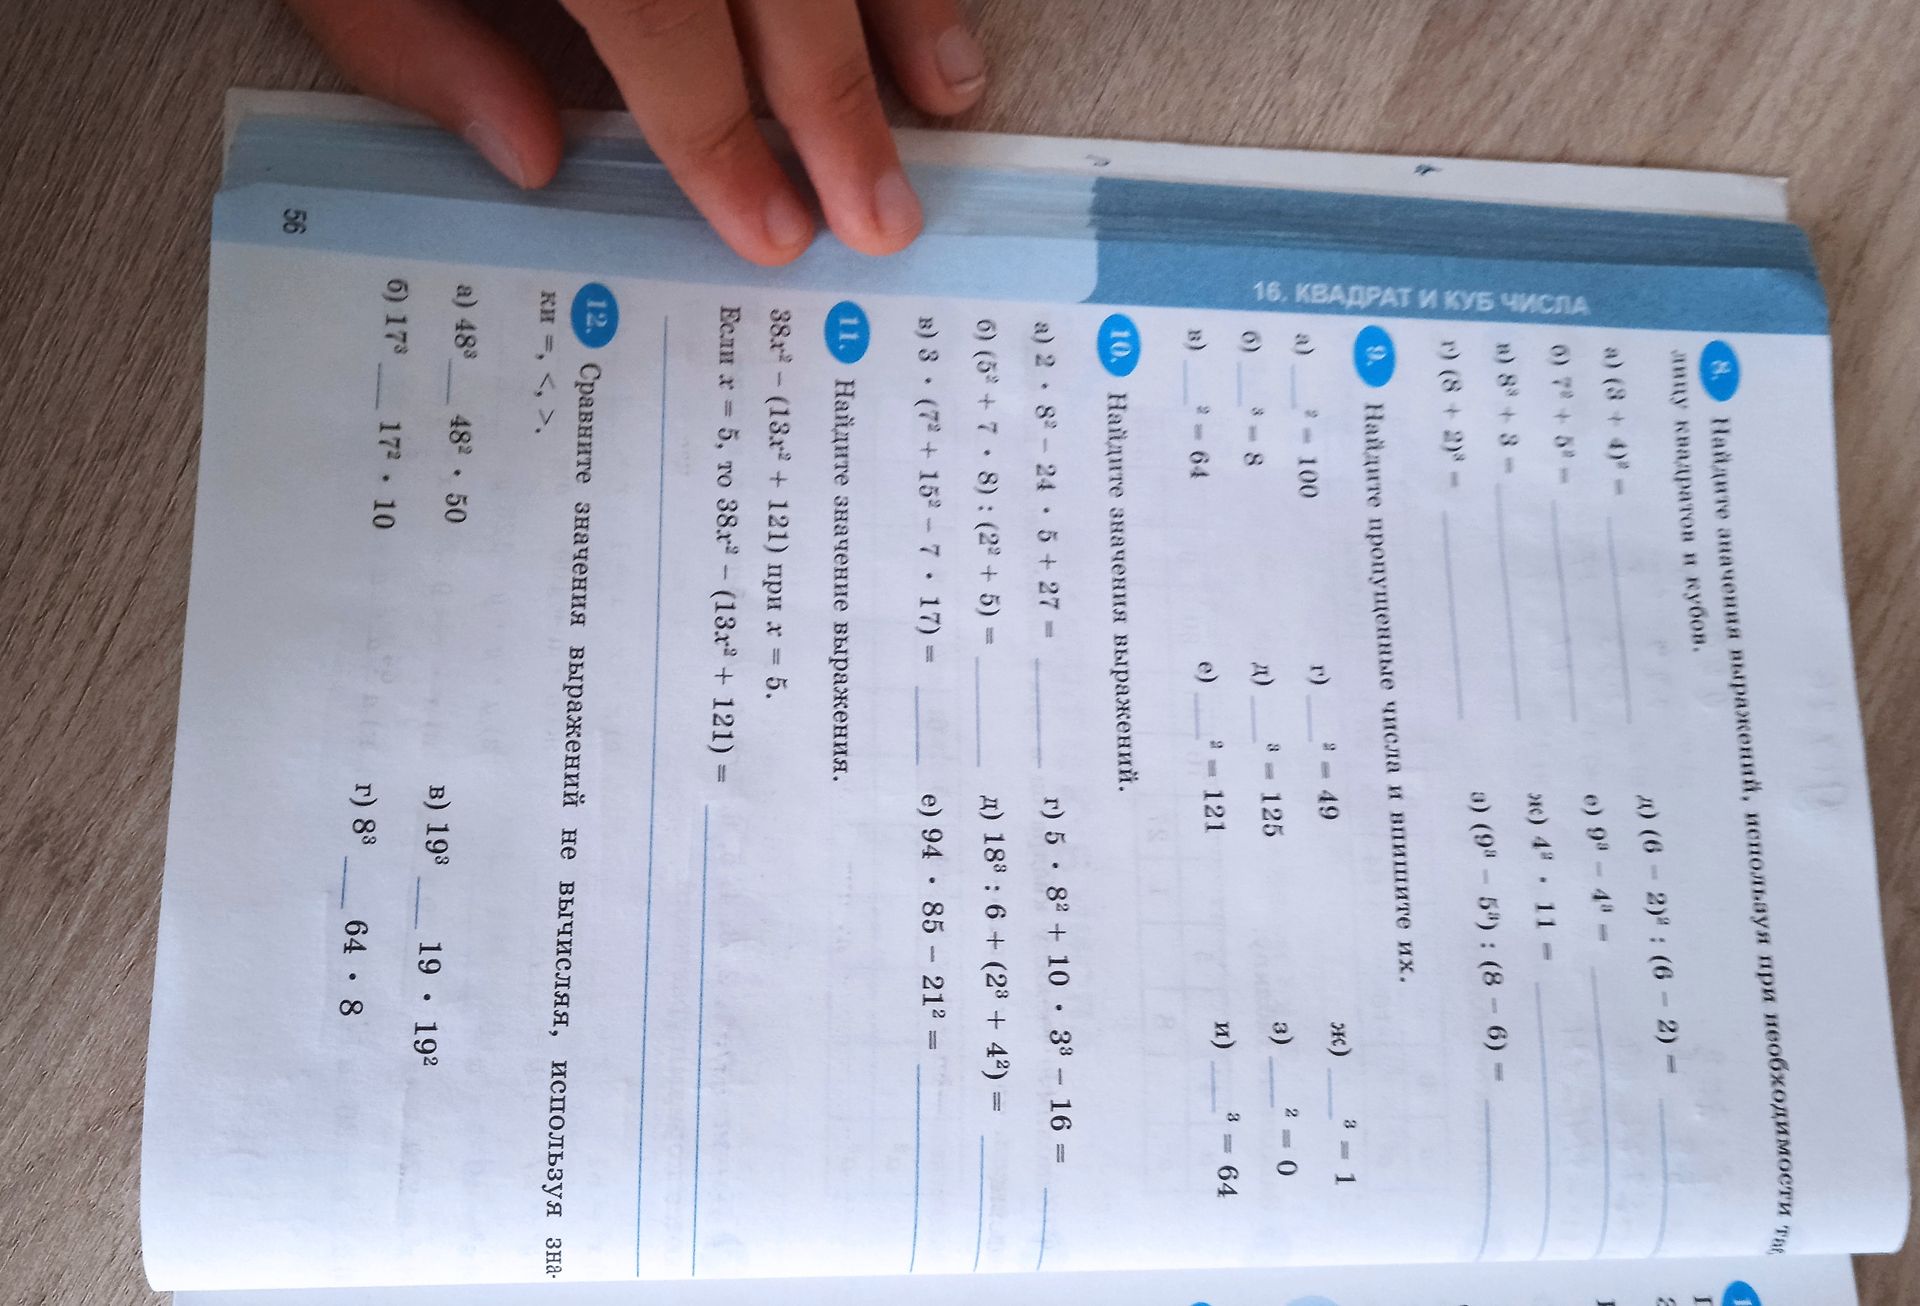 16. КВАДРАТ И КУБ ЧИСЛА
8. Найдите значения выражений, используя при необходимости
лицу квадратов и кубов.
а) (3 + 4)² = ___ д) (6 − 2)² : (6 − 2) = ___
б) 7² + 5² = ___ е) 9³ − 4³ = ___
в) 8³ + 3 = ___ ж) 4² · 11 = ___
г) (8 + 2)³ = ___ з) (9³ − 5³) : (8 − 6) = ___
9. Найдите пропущенные числа и впишите их.
а) ___² = 100 г) ___² = 49 ж) ___³ = 1
б) ___³ = 8 д) ___³ = 125 з) ___² = 0
в) ___² = 64 е) ___² = 121 и) ___³ = 64
10. Найдите значения выражений.
а) 2 · 8² − 24 · 5 + 27 = ___ г) 5 · 8² + 10 · 3³ − 16 = ___
б) (5² + 7 · 8) : (2² + 5) = ___ д) 18³ : 6 + (2³ + 4²) = ___
в) 3 · (7² + 15² − 7 · 17) = ___ е) 94 · 85 − 21² = ___
11. Найдите значение выражения.
38x² − (13x² + 121) при x = 5.
Если x = 5, то 38x² − (13x² + 121) = ___
12. Сравните значения выражений не вычисляя, используя зна-
ки =, <, >.
а) 48³ ___ 48² · 50 в) 19³ ___ 19 · 19²
б) 17³ ___ 17² · 10 г) 8³ ___ 64 · 8
56